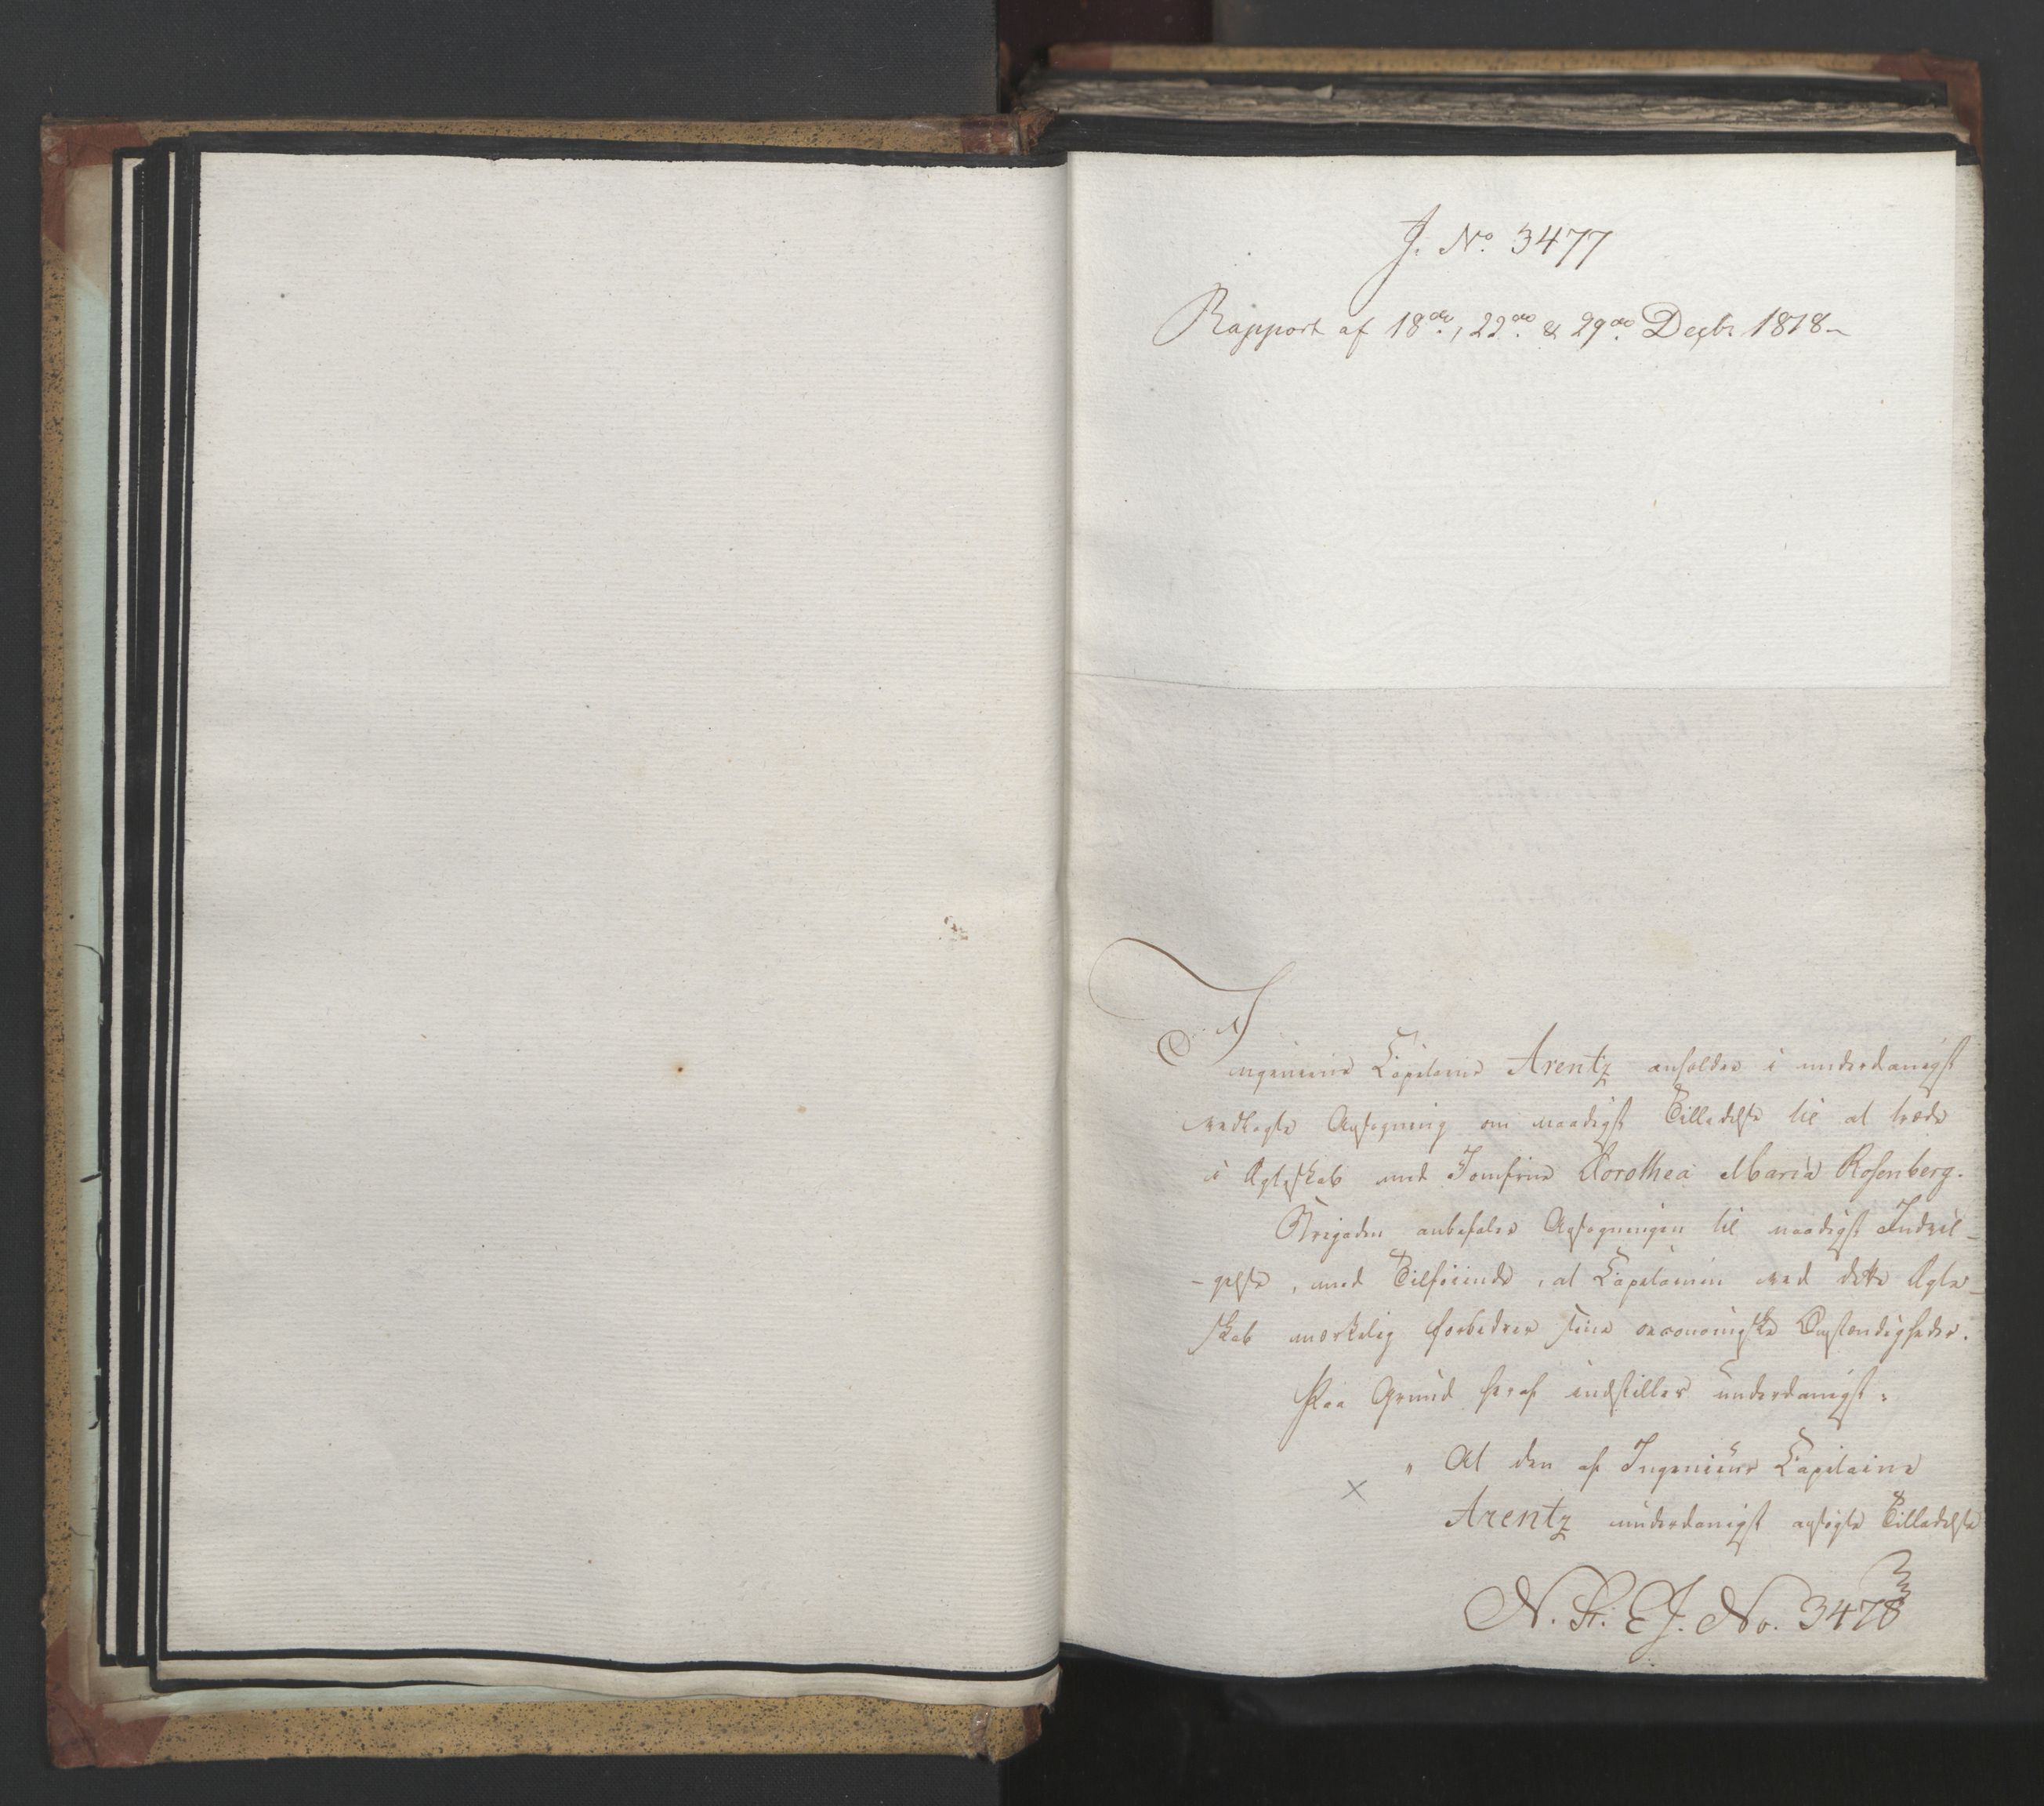 J. No. 3477
Rapport af 18de, 22de & 29de Decbr 1818
Ingenieur Capitaine Arentz anholder i underdanigst
vedlagte Ansøgning om naadigst Tilladelse til at træde
i Ægteskab med Jomfrue Dorothea Maria Rosenberg.
Brigaden anbefaler Ansøgningen til naadigst Indvil-
-gelse, med Tilføiende, at Capitainen ved dette Ægte-
skab mærkelig forbedrer sine oeconomiske Omstændigheder.
Paa Grund heraf indstilles underdanigst:
„ At den af Ingenieur Capitaine
Arentz underdanigst ansøgte Tilladelse
N. St. E J. No. 3478